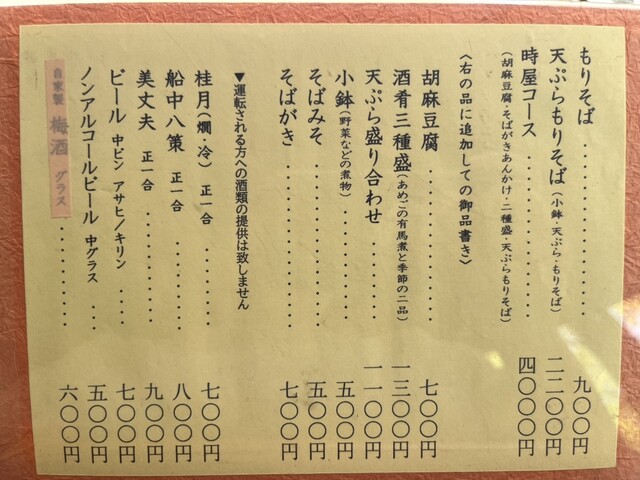 もりそば・・・・・・・・・・・・・・・・・・九〇〇円
天ぷらもりそば(小鉢・天ぷら・もりそば) 二二〇〇円
時屋コース・・・・・・・・・・・・・・・・四〇〇〇円
(胡麻豆腐・そばがきあんかけ・二種盛・天ぷらもりそば)
〈右の品に追加しての御品書き〉
胡麻豆腐・・・・・・・・・・・・七〇〇円
酒肴三種盛(あめごの有馬煮と季節の二品) 一三〇〇円
天ぷら盛り合わせ・・・・・・一一〇〇円
小鉢(野菜などの煮物)・・・・・・・五〇〇円
そばみそ・・・・・・・・・・・・五〇〇円
そばがき・・・・・・・・・・・・七〇〇円
▼運転される方への酒類の提供は致しません
桂月(燗、冷) 正一合・・・・・・七〇〇円
船中八策 正一合・・・・・・八〇〇円
美丈夫 正一合・・・・・・・九〇〇円
ビール 中ビン アサヒ/キリン・・・・七〇〇円
ノンアルコールビール 中グラス・・・五〇〇円
自家製 梅酒 グラス・・・・・・・六〇〇円